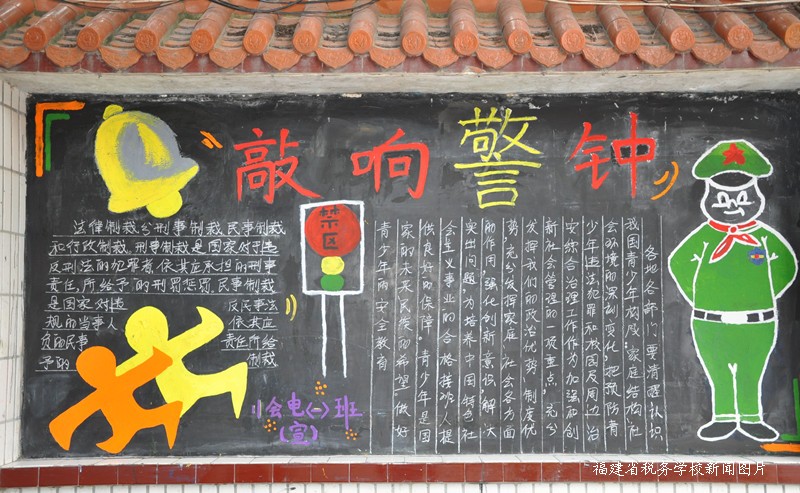 敲响警钟
法律制裁分刑事制裁、民事制裁
和行政制裁。刑事制裁是国家对于违
反刑法的犯罪者,依其应承担的刑事
责任,所给予的刑罚惩罚。民事制裁
是国家对违 反民事法
规的当事人 依其应
负的民事 责任所给
予的 制裁
禁区
各地各部门,要清醒认识
我国青少年构成、家庭结构、社
会环境的深刻变化,把预防青
少年违法犯罪和校园及周边治
安综合治理工作作为加强和创
新社会管理的一项重点,充分
发挥我们的政治优势、制度优
势,充分发挥家庭、社会各方面
的作用,强化创新意识,解决
突出问题,为培养中国特色社
会主义事业的合格接班人提
供良好的保障。青少年是国
家的未来,民族的希望,做好
青少年的安全教育
11会电(一)班
(宣)
福建省税务学校新闻图片